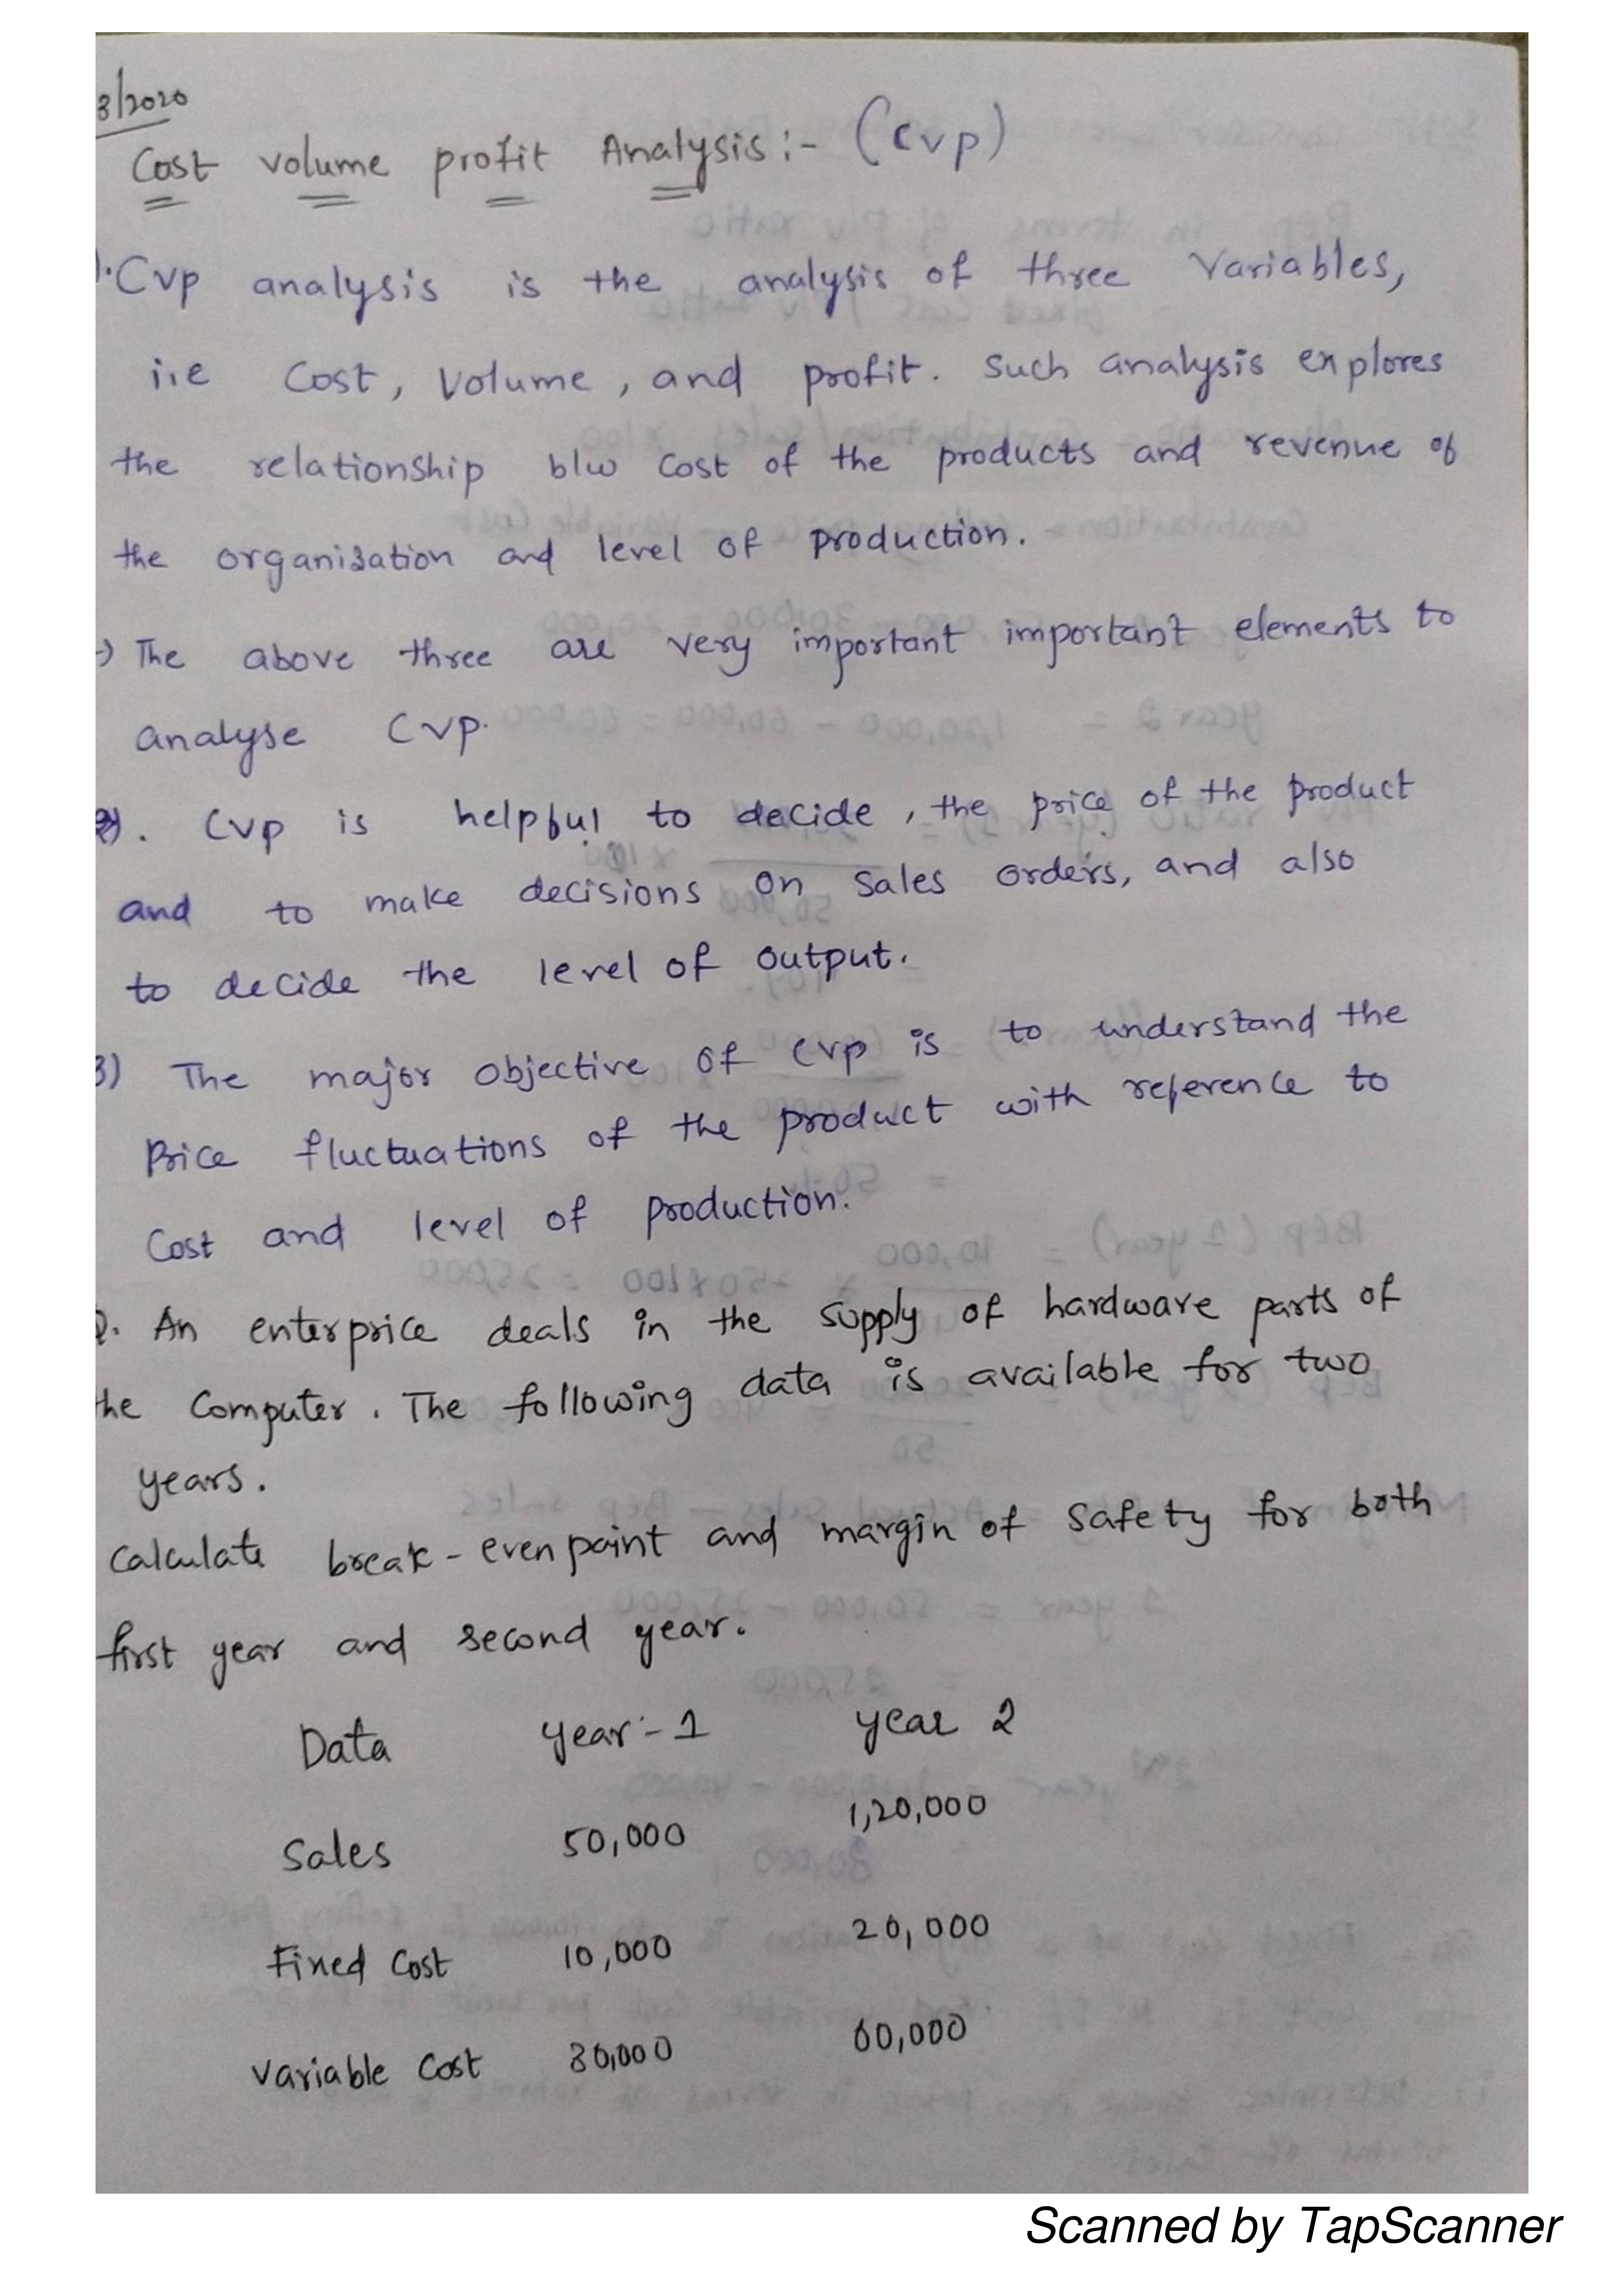 3/2020
Cost volume profit Analysis:- (CVP)
1. CVP analysis is the analysis of three Variables,
i.e Cost, Volume, and profit. Such analysis explores
the relationship b/w Cost of the products and revenue of
the organisation and level of production.
→ The above three are very important important elements to
analyse CVP.
2). CVP is helpful to decide, the price of the product
and to make decisions on Sales orders, and also
to decide the level of output.
3) The major objective of CVP is to understand the
Price fluctuations of the product with reference to
Cost and level of production.
Q. An enterprice deals in the supply of hardware parts of
the Computer. The following data is available for two
years.
Calculate break-even point and margin of safety for both
first year and second year.
Data year-1 year 2
Sales 50,000 1,20,000
Fixed Cost 10,000 20,000
Variable Cost 30,000 60,000
Scanned by TapScanner